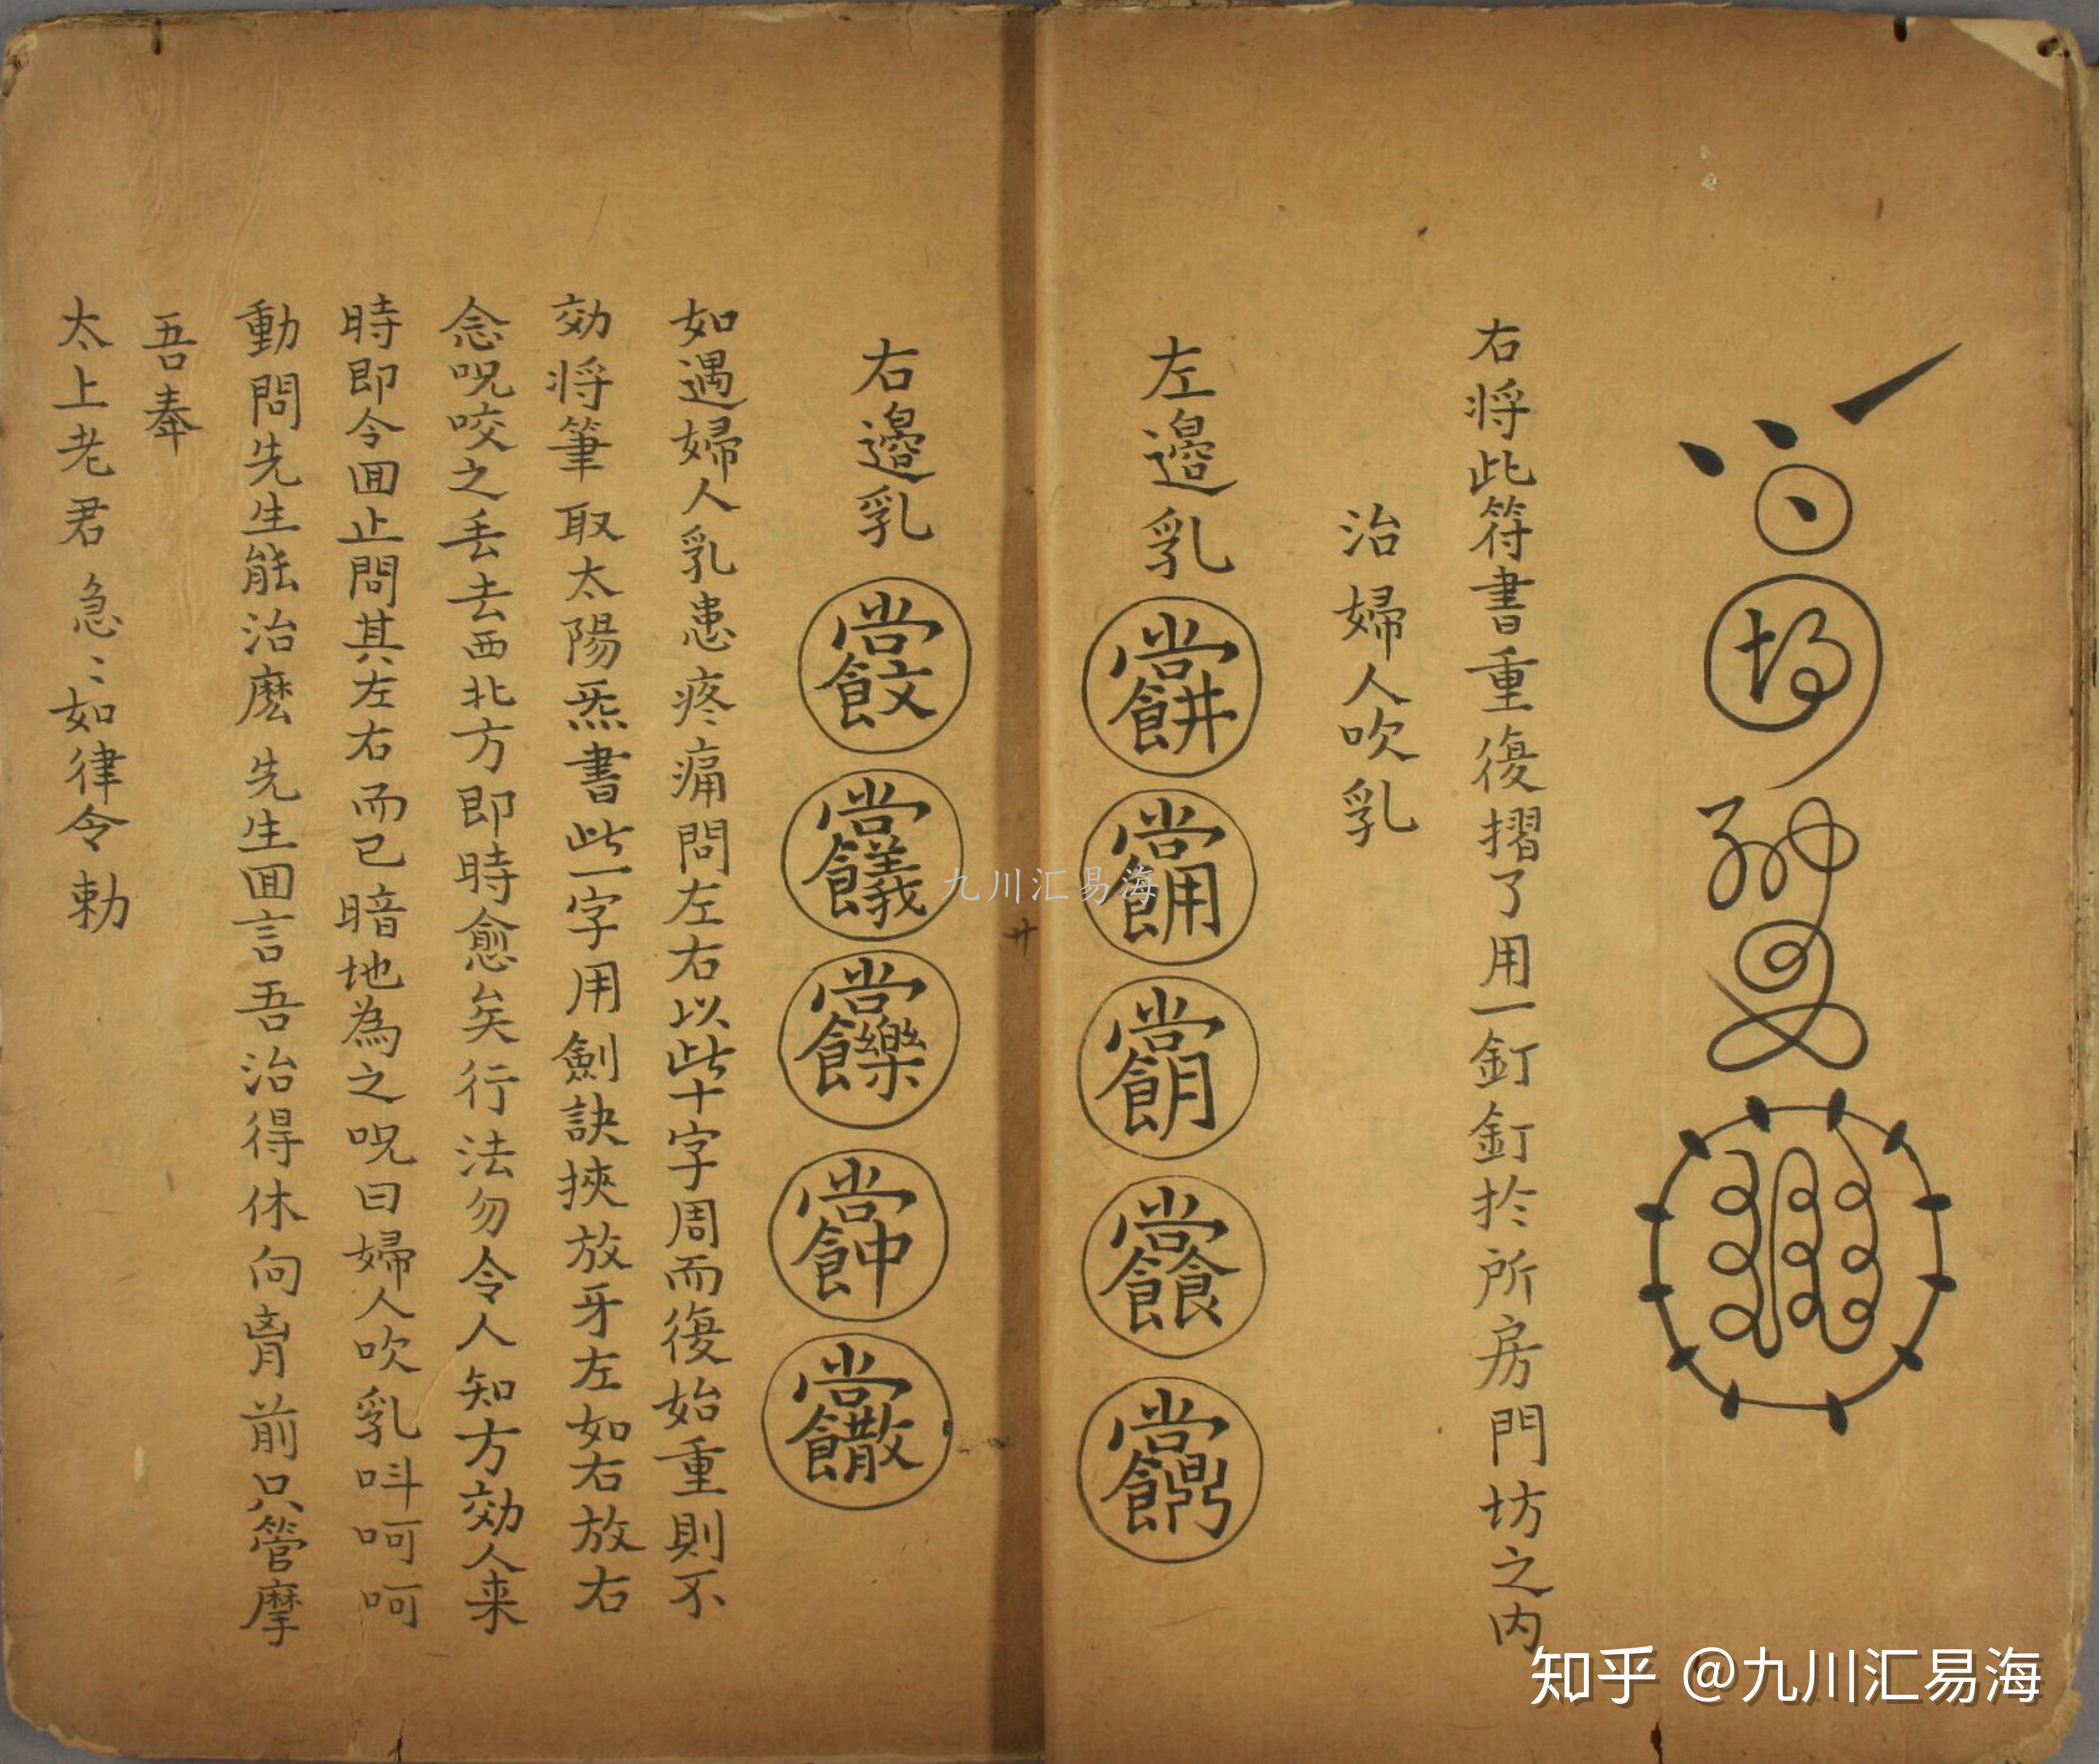 右将此符書重復摺了用一釘釘扵所房門坊之内
治婦人吹乳
左邉乳
右邉乳
如遇婦人乳患疼痛問左右以此十字周而復始重則不
効将筆取太陽炁書此一字用劍訣挾放牙左如右放右
念呪咬之丢去西北方即時愈矣行法勿令人知方効人来
時即令囬止問其左右而已暗地為之呪曰婦人吹乳呌呵呵
動問先生能治麽先生囬言吾治得休向胷前只管摩
吾奉
太上老君急〻如律令勅
九川汇易海
知乎 @九川汇易海